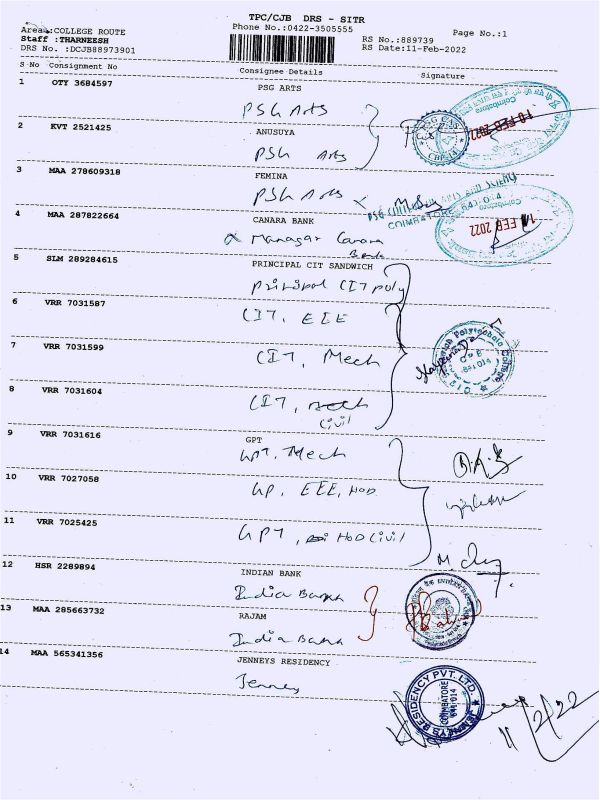 TPC/CJB DRS - SITR
Phone No.:0422-3505555
Area :COLLEGE ROUTE
Staff :THARNEESH
DRS No. :DCJB88973901
RS No.:889739
RS Date:11-Feb-2022
Page No.:1
S No Consignment No Consignee Details Signature
1 OTY 3684597 PSG ARTS
PSG Arts
2 KVT 2521425 ANUSUYA
PSG Arts
3 MAA 278609318 FEMINA
PSG Arts
COIMBATORE 641 014
4 MAA 287822664 CANARA BANK
Manager Canara
Bank
5 SLM 289284615 PRINCIPAL CIT SANDWICH
Principal CIT poly
6 VRR 7031587
CIT, EEE
7 VRR 7031599
CIT, Mech
8 VRR 7031604
CIT,
Civil
9 VRR 7031616 GPT
GPT, Mech
10 VRR 7027058
GP, EEE, HOD
11 VRR 7025425
GPT, HOD Civil
12 HSR 2289894 INDIAN BANK
India Bank
13 MAA 285663732 RAJAM
India Bank
14 MAA 565341356 JENNEYS RESIDENCY
Jenneys
JENNEYS RESIDENCY PVT. LTD.
COIMBATORE
641 014
11/2/22